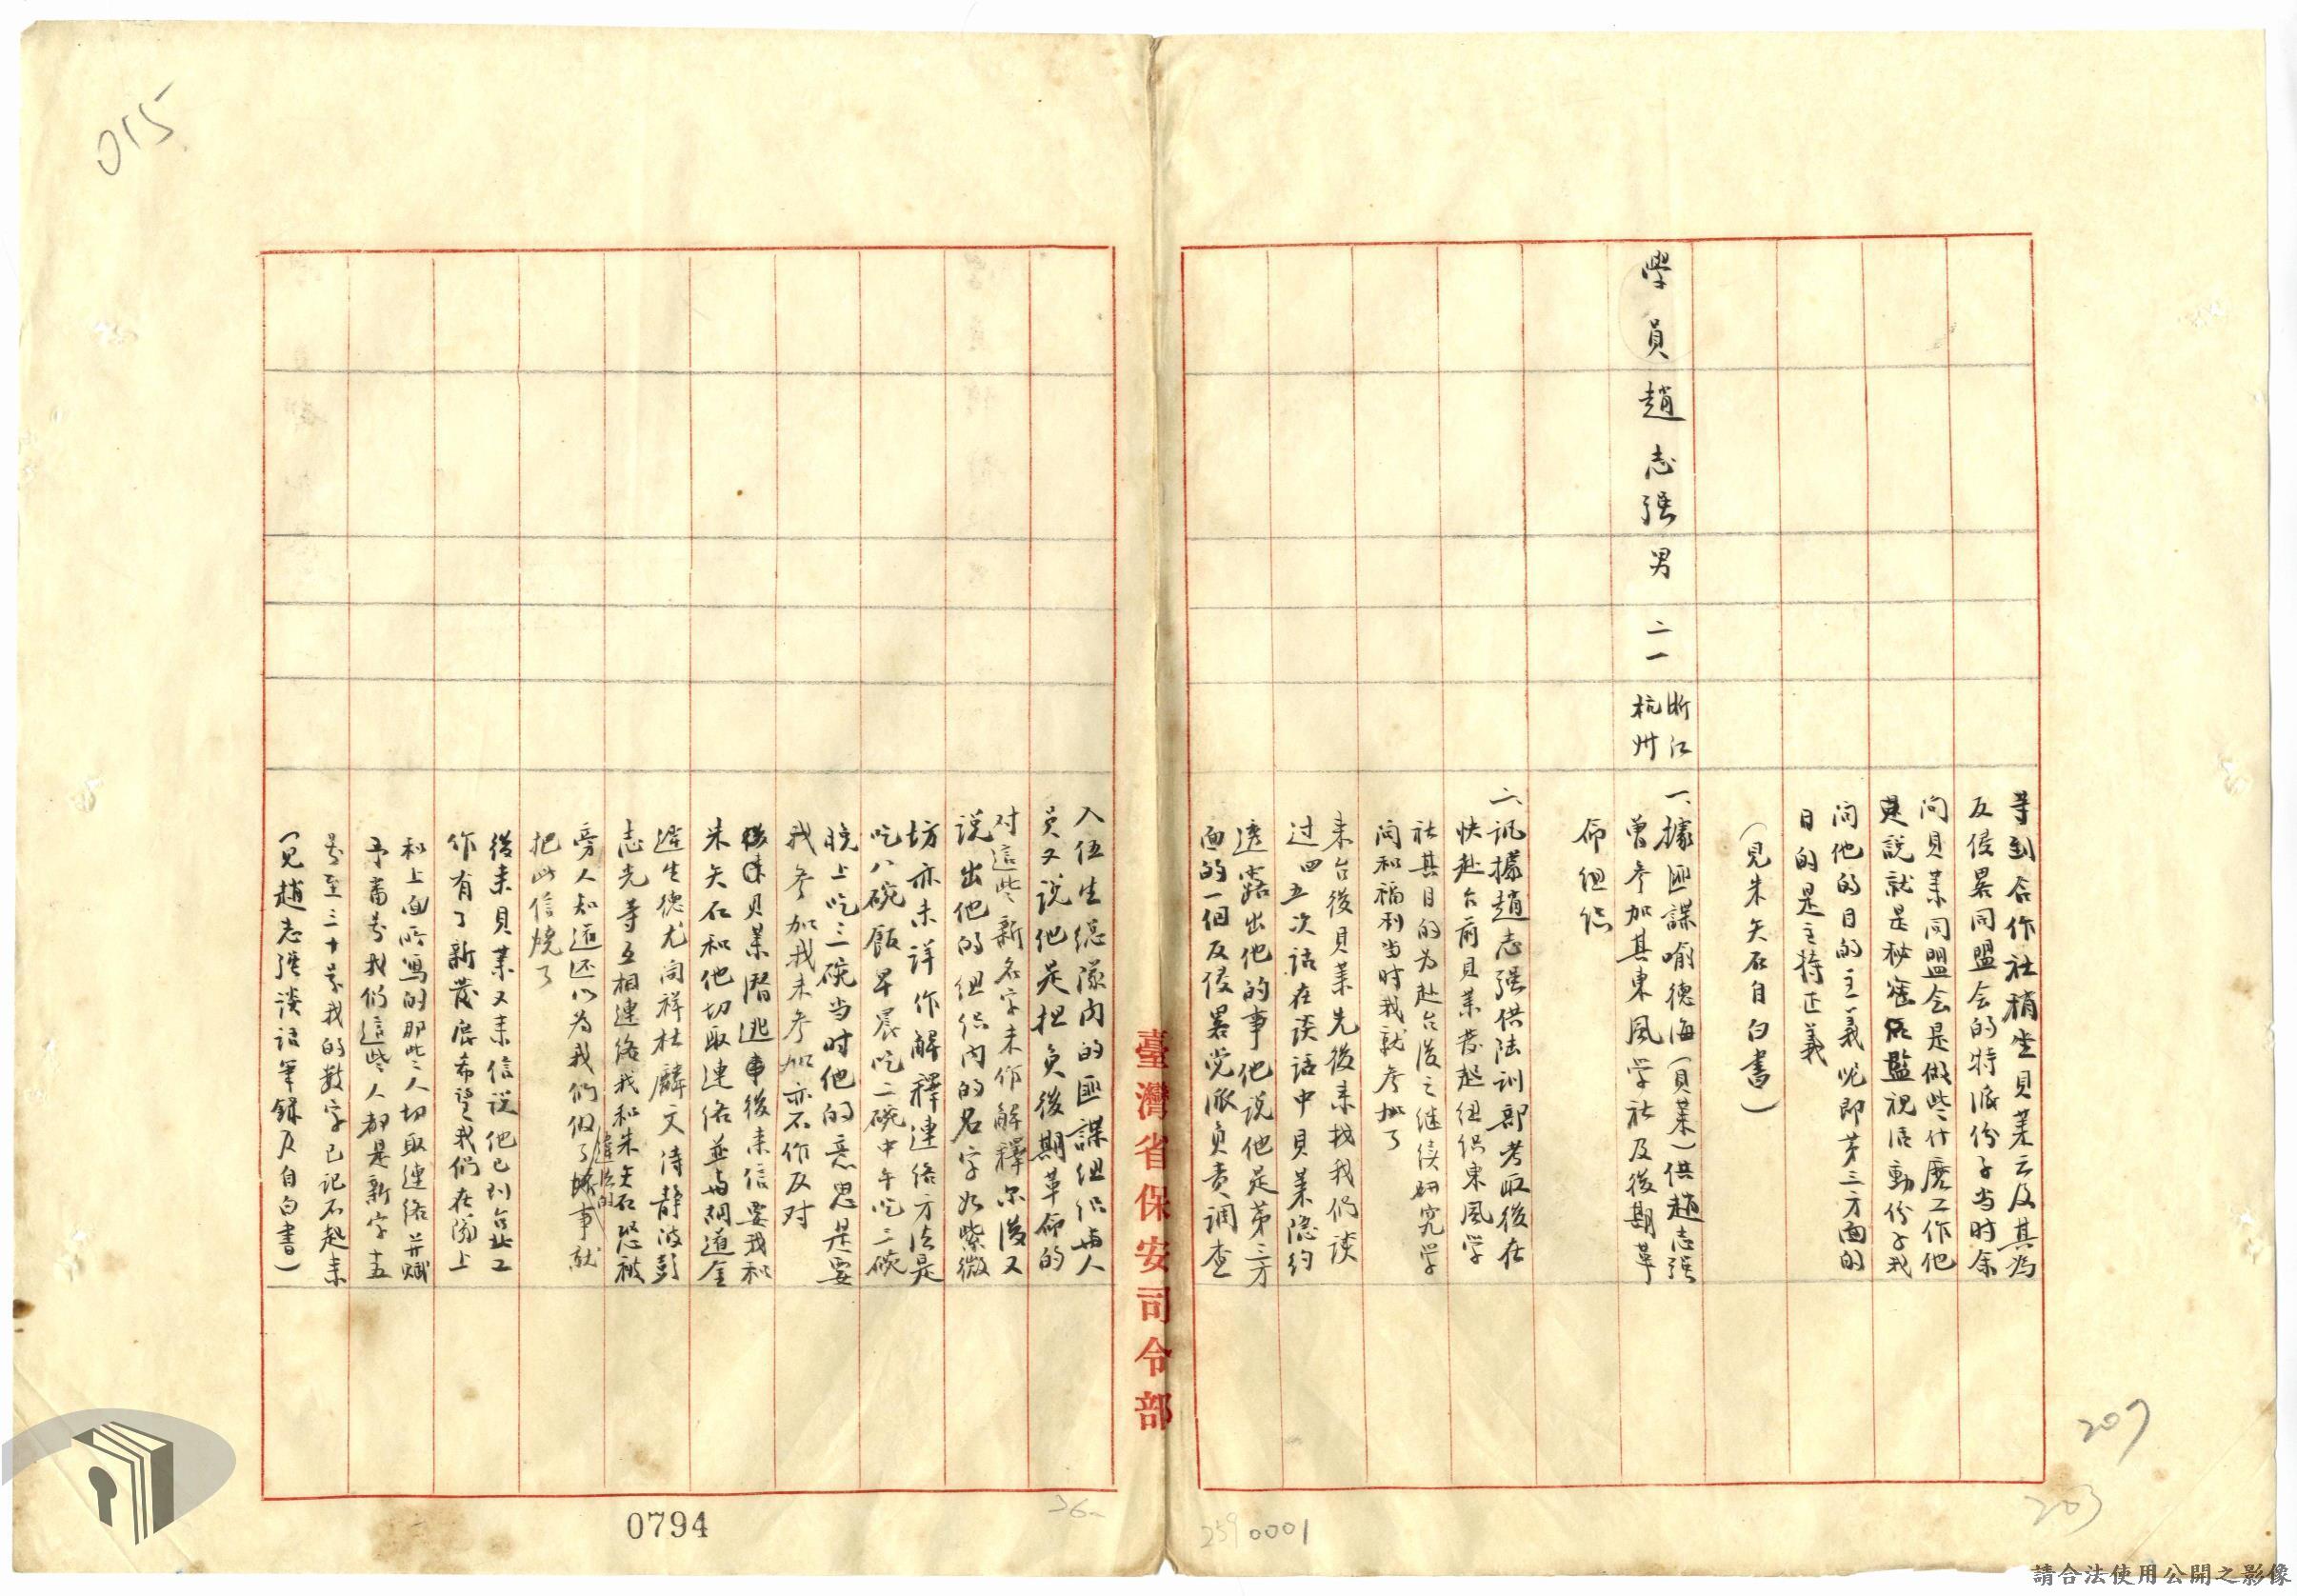 015
等到合作社稍坐貝葉云及其為
反侵畧同盟会的特派份子当时余
问貝葉同盟会是做些什麽工作他
是説就是秘密監視活動份子我
问他的目的主義呢即第三方面的
目的是主持正義
(見朱矢石自白書)
學員趙志强男二一浙江杭州
一、據匪諜喻德海(貝葉)供趙志强
曾参加其東風学社及後期革
命组织
二、訊據趙志强供陆训部考取後在
快赴台前貝葉發起组织東風学
社其目的为赴台後之继续研究学
问和福利当时我就参加了
来台後貝葉先後来找我们谈
过四五次話在谈話中貝葉隐约
透露出他的事他说他是第三方
面的一個反侵畧党派负责調查
入伍生總隊内的匪諜组织與人
员又说他是担负後期革命的
对這些新名字未作解釋尔後又
说出他的组织内的名字如紫微
坊亦未详作解釋連络方法是
吃八碗飯早晨吃二碗中午吃三碗
晚上吃三碗当时他的意思是要
我参加我未参加亦不作反对
後貝葉潛逃事後来信要我和
朱矢石和他切取連络並與綱道全
遲生德尤同祥杜麟文侍静波彭
志光等互相連络我和朱矢石恐被
旁人知道还以为我们做了違法的事就
把此信燒了
後来貝葉又来信说他已到台北工
作有了新發展希望我们在陽上
和上面所寫的那些人切取連络并赋
予番号我们這些人都是新字五
号至三十号我的数字已记不起来
(見趙志强谈话筆錄及自白書)
臺灣省保安司令部
0794
36
259 0001
207
203
請合法使用公開之影像